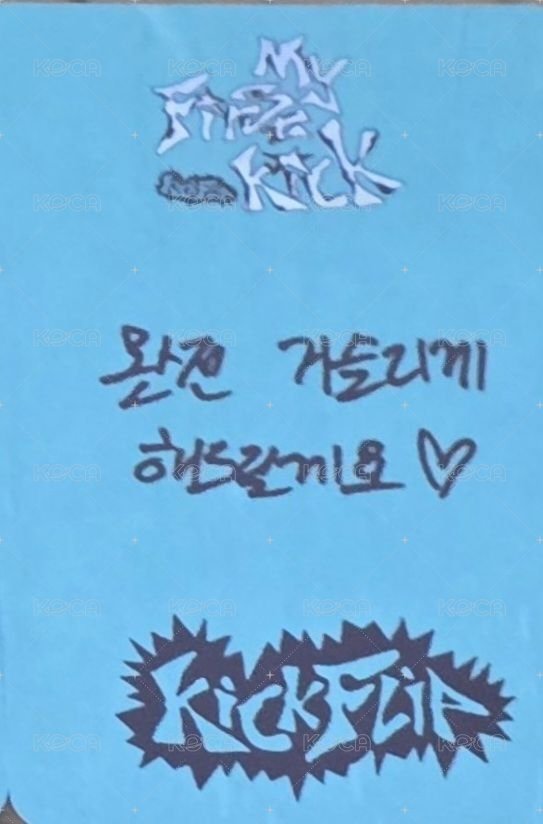 My
First
Kick
완전 거슬리게
해드릴게요 ♡
KickFlip